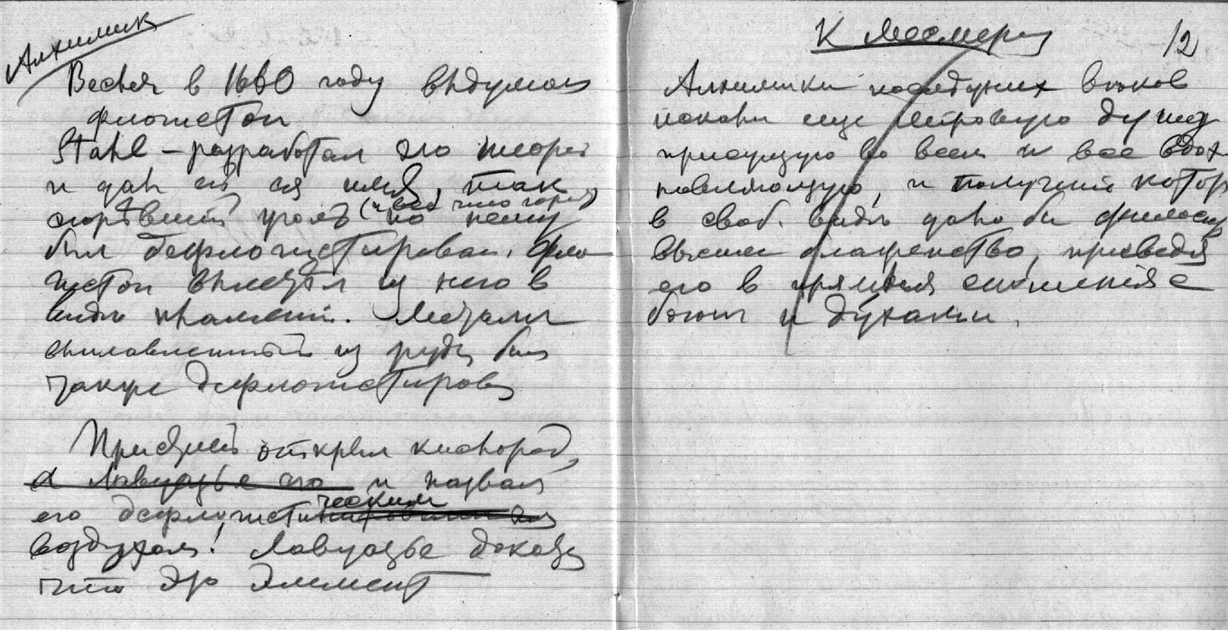 Алхимик
Весьєя в 1660 году выдумал
флогистон
Stahl – разработал его теорию
и дал ей имя, так
(и все что горит)
сгоревший уголь по нему
был дефлогистирован. Фло
гистон вылетал из него в
виде пламени. Металл
выплавленный из руды был
также дефлогистирован
Пристлей открыл кислород,
а Лавуазье его и назвал
ческим
его дефлогисти
воздухом! Лавуазье доказал
что это элемент
К Месмеру
12
Алхимики последних веков
искали еще мировую душу
присущую во всем и все вдох
новляющую, и получить котор
в своб. виде дало бы философу
высшее блаженство, приведя
его в прямыя сношения с
богом и духами.